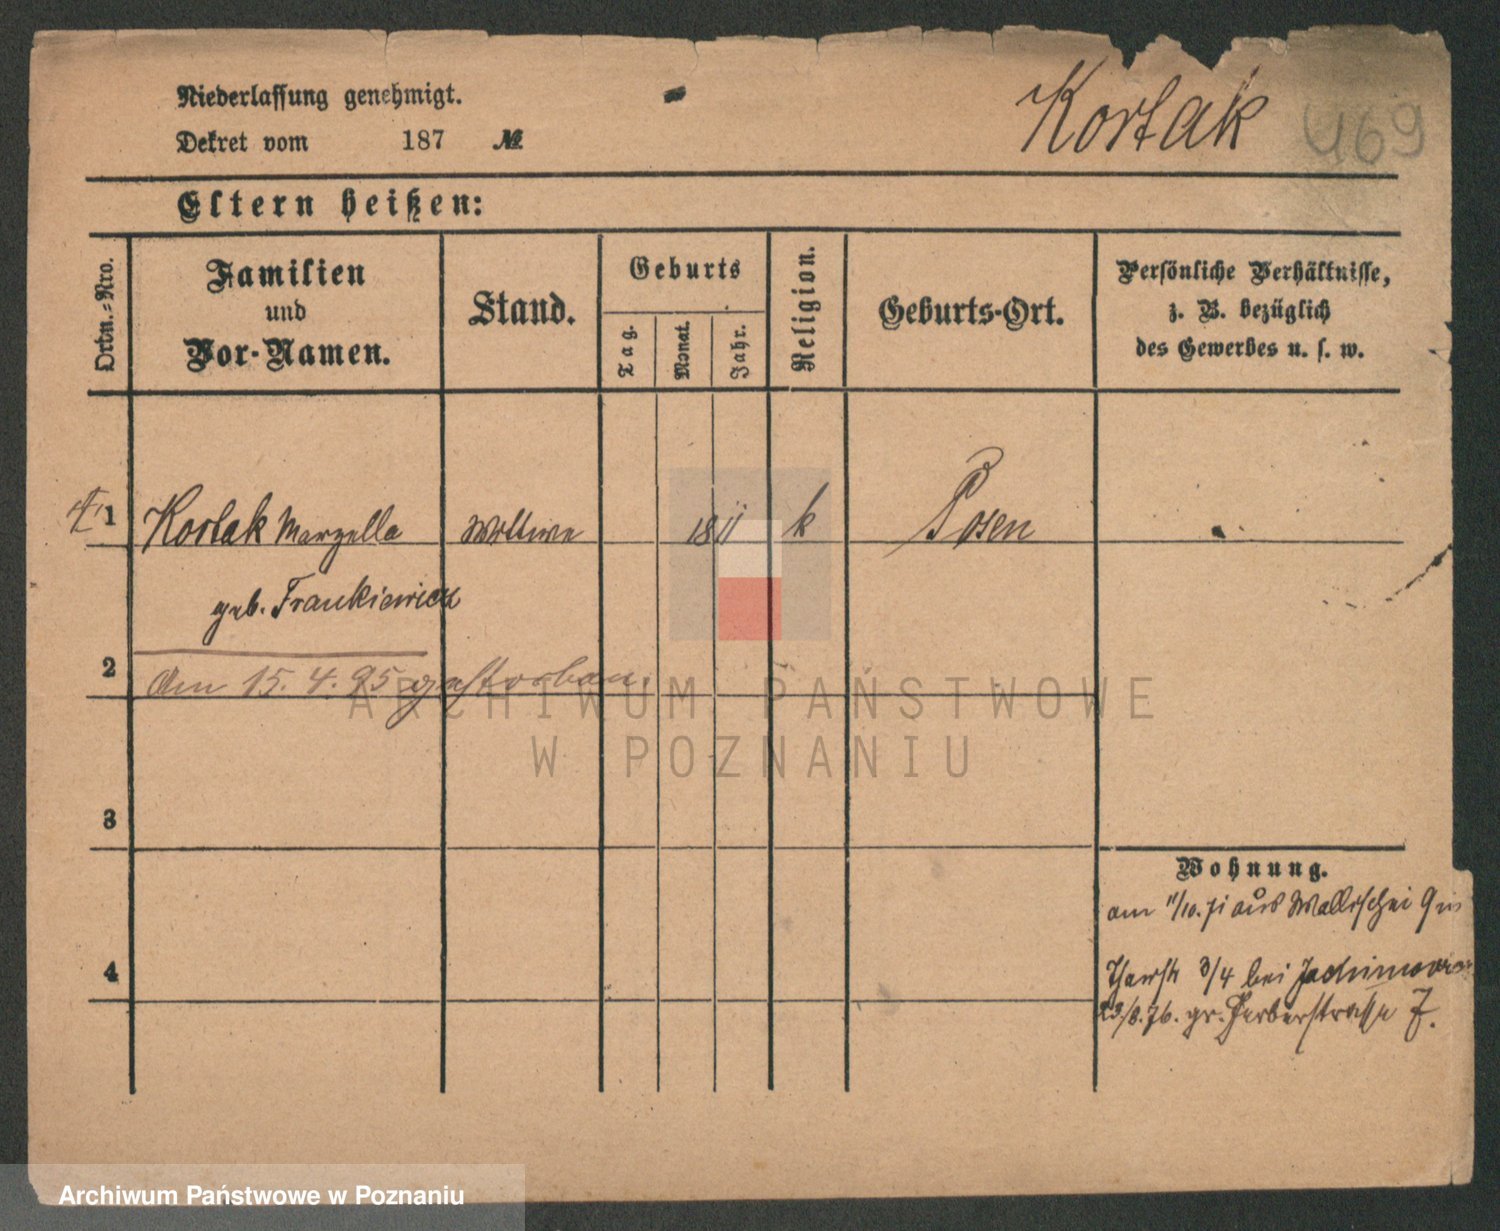 Niederlassung genehmigt.
Dekret vom 187 №
Kortak
469
Eltern heißen:
Ordn.-Nro.
Familien und Vor-Namen.
Stand.
Geburts
Tag.
Monat.
Jahr.
Religion.
Geburts-Ort.
Persönliche Verhältnisse,
z. B. bezüglich
des Gewerbes u. s. w.
1 Kortak Marzella Wittwe 1811 k Posen
geb. Frankiewicz
2 Am 15. 4. 95 gestorben.
3
4
Wohnung.
am 11/10. 71 aus Wallischei 9 in
3/4 bei
23/8. 76. gr. Gerberstrasse 7.
ARCHIWUM PAŃSTWOWE
W POZNANIU
Archiwum Państwowe w Poznaniu